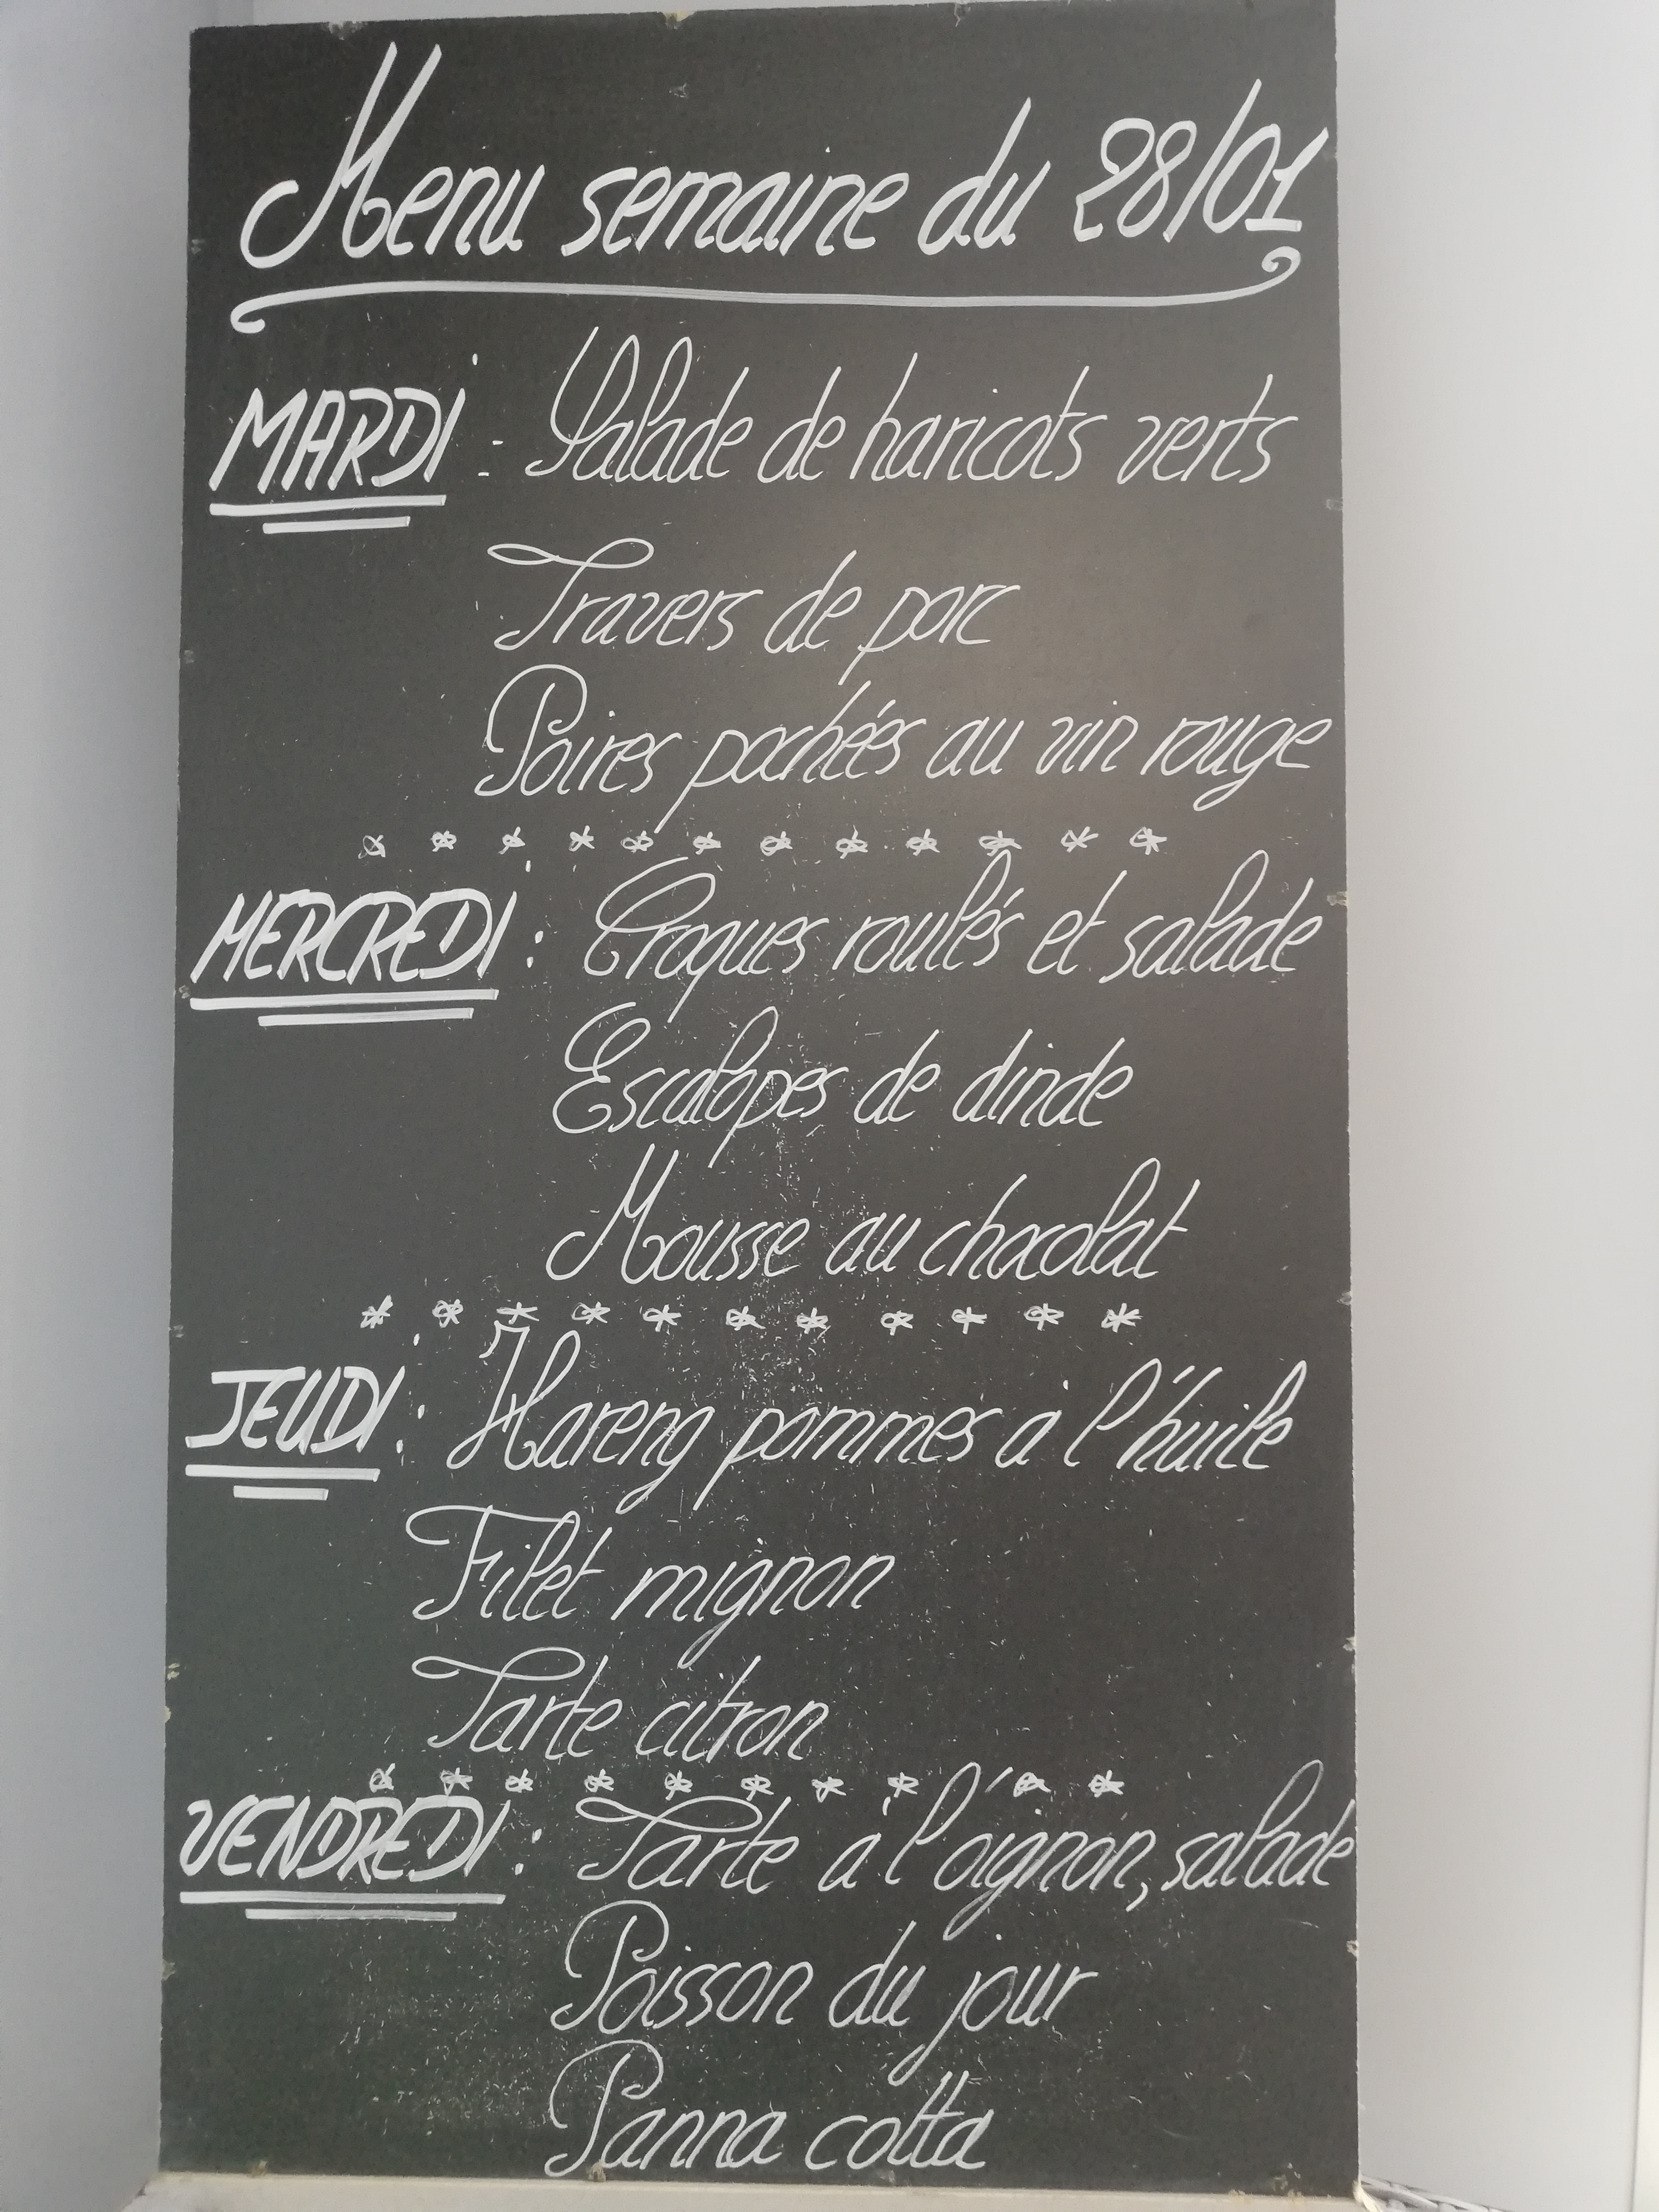 Menu semaine du 28/01
MARDI : Salade de haricots verts
Travers de porc
Poires pochées au vin rouge
* * * * * * * * * * * *
MERCREDI : Croques roulés et salade
Escalopes de dinde
Mousse au chocolat
* * * * * * * * * * *
JEUDI : Hareng pommes à l'huile
Filet mignon
Tarte citron
* * * * * * * * * *
VENDREDI : Tarte à l'oignon, salade
Poisson du jour
Panna cotta